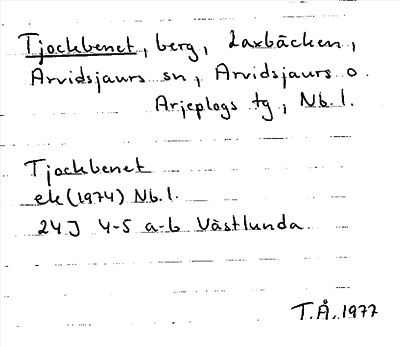 Tjockbenet, berg, Laxbäcken,
Arvidsjaurs sn, Arvidsjaurs o.
Arjeplogs tg, Nb. l.
Tjockbenet
ek (1974) Nb. l.
24J 4-5 a-b Västlunda
T.Å. 1977